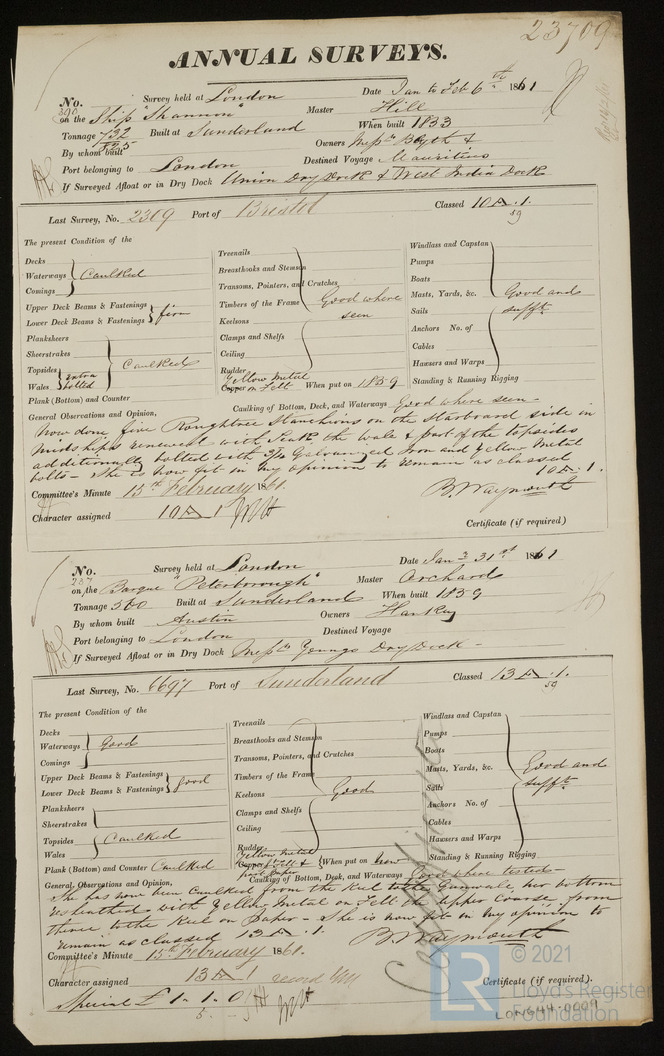 23709
ANNUAL SURVEYS.
No. 390 Survey held at London Date Jan to Feb 6th 1861
on the Ship "Shannon" Master Hill
Tonnage 732 Built at Sunderland When built 1833
825
By whom built Owners Messrs Blyth &
Port belonging to London Destined Voyage Mauritius
If Surveyed Afloat or in Dry Dock Union Dry Dock & West India Dock
Last Survey, No. 2309 Port of Bristol Classed 10 A. 1.
59
The present Condition of the
Decks
Waterways Caulked
Comings
Upper Deck Beams & Fastenings
Lower Deck Beams & Fastenings firm
Planksheers
Sheerstrakes
Topsides extra Caulked
Wales bolted
Plank (Bottom) and Counter
Treenails
Breasthooks and Stemson
Transoms, Pointers, and Crutches
Timbers of the Frame Good where
Keelsons seen
Clamps and Shelfs
Ceiling
Rudder
Yellow Metal
Copper on Felt When put on 1859
Windlass and Capstan
Pumps
Boats
Masts, Yards, &c. Good and
Sails sufft
Anchors No. of
Cables
Hawsers and Warps
Standing & Running Rigging
Caulking of Bottom, Deck, and Waterways Good where seen -
General Observations and Opinion,
Now done five Roughtree Stanchions on the Starboard side in
midships renewed with Teak the wale & part of the topsides
additionally bolted with Galvanized Iron and Yellow Metal
bolts - She is now fit in my opinion to remain as classed
10 A. 1.
Committee's Minute 15th February 1861. B. Waymouth
Character assigned 10 A 1
Certificate (if required)
No. 287 Survey held at London Date Jan 31st 1861
on the Barque "Peterborough" Master Orchard
Tonnage 560 Built at Sunderland When built 1859
By whom built Austin Owners Hankey
Port belonging to London Destined Voyage
If Surveyed Afloat or in Dry Dock Messrs Youngs Dry Dock -
Last Survey, No. 6697 Port of Sunderland Classed 13 A. 1.
59
The present Condition of the
Decks
Waterways Good
Comings
Upper Deck Beams & Fastenings
Lower Deck Beams & Fastenings good
Planksheers
Sheerstrakes
Topsides Caulked
Wales
Plank (Bottom) and Counter Caulked
Treenails
Breasthooks and Stemson
Transoms, Pointers, and Crutches
Timbers of the Frame
Keelsons Good
Clamps and Shelfs
Ceiling
Rudder
Yellow Metal
Copper Felt & When put on now
part Paper
Windlass and Capstan
Pumps
Boats
Masts, Yards, &c. Good and
Sails sufft
Anchors No. of
Cables
Hawsers and Warps
Standing & Running Rigging
Caulking of Bottom, Deck, and Waterways Good where tested -
General Observations and Opinion,
She has now been Caulked from the Keel to the Gunwale, her bottom
resheathed with Yellow Metal on Felt the upper course, from
thence to the Keel on Paper - She is now fit in my opinion to
remain as classed 13 A. 1. B. Waymouth
Committee's Minute 15th February 1861.
Character assigned 13 A 1
Certificate (if required).
Special £ 1. 1. 0
LON644-0009
© 2021
LR
Lloyd's Register
Foundation